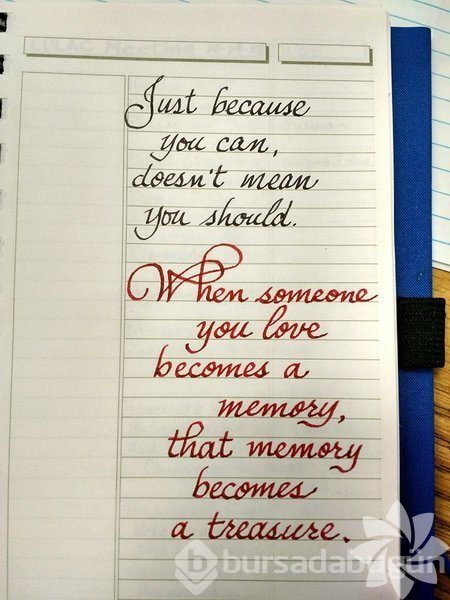 Just because
you can,
doesn't mean
you should.
When someone
you love
becomes a
memory,
that memory
becomes
a treasure.
b bursadabugün